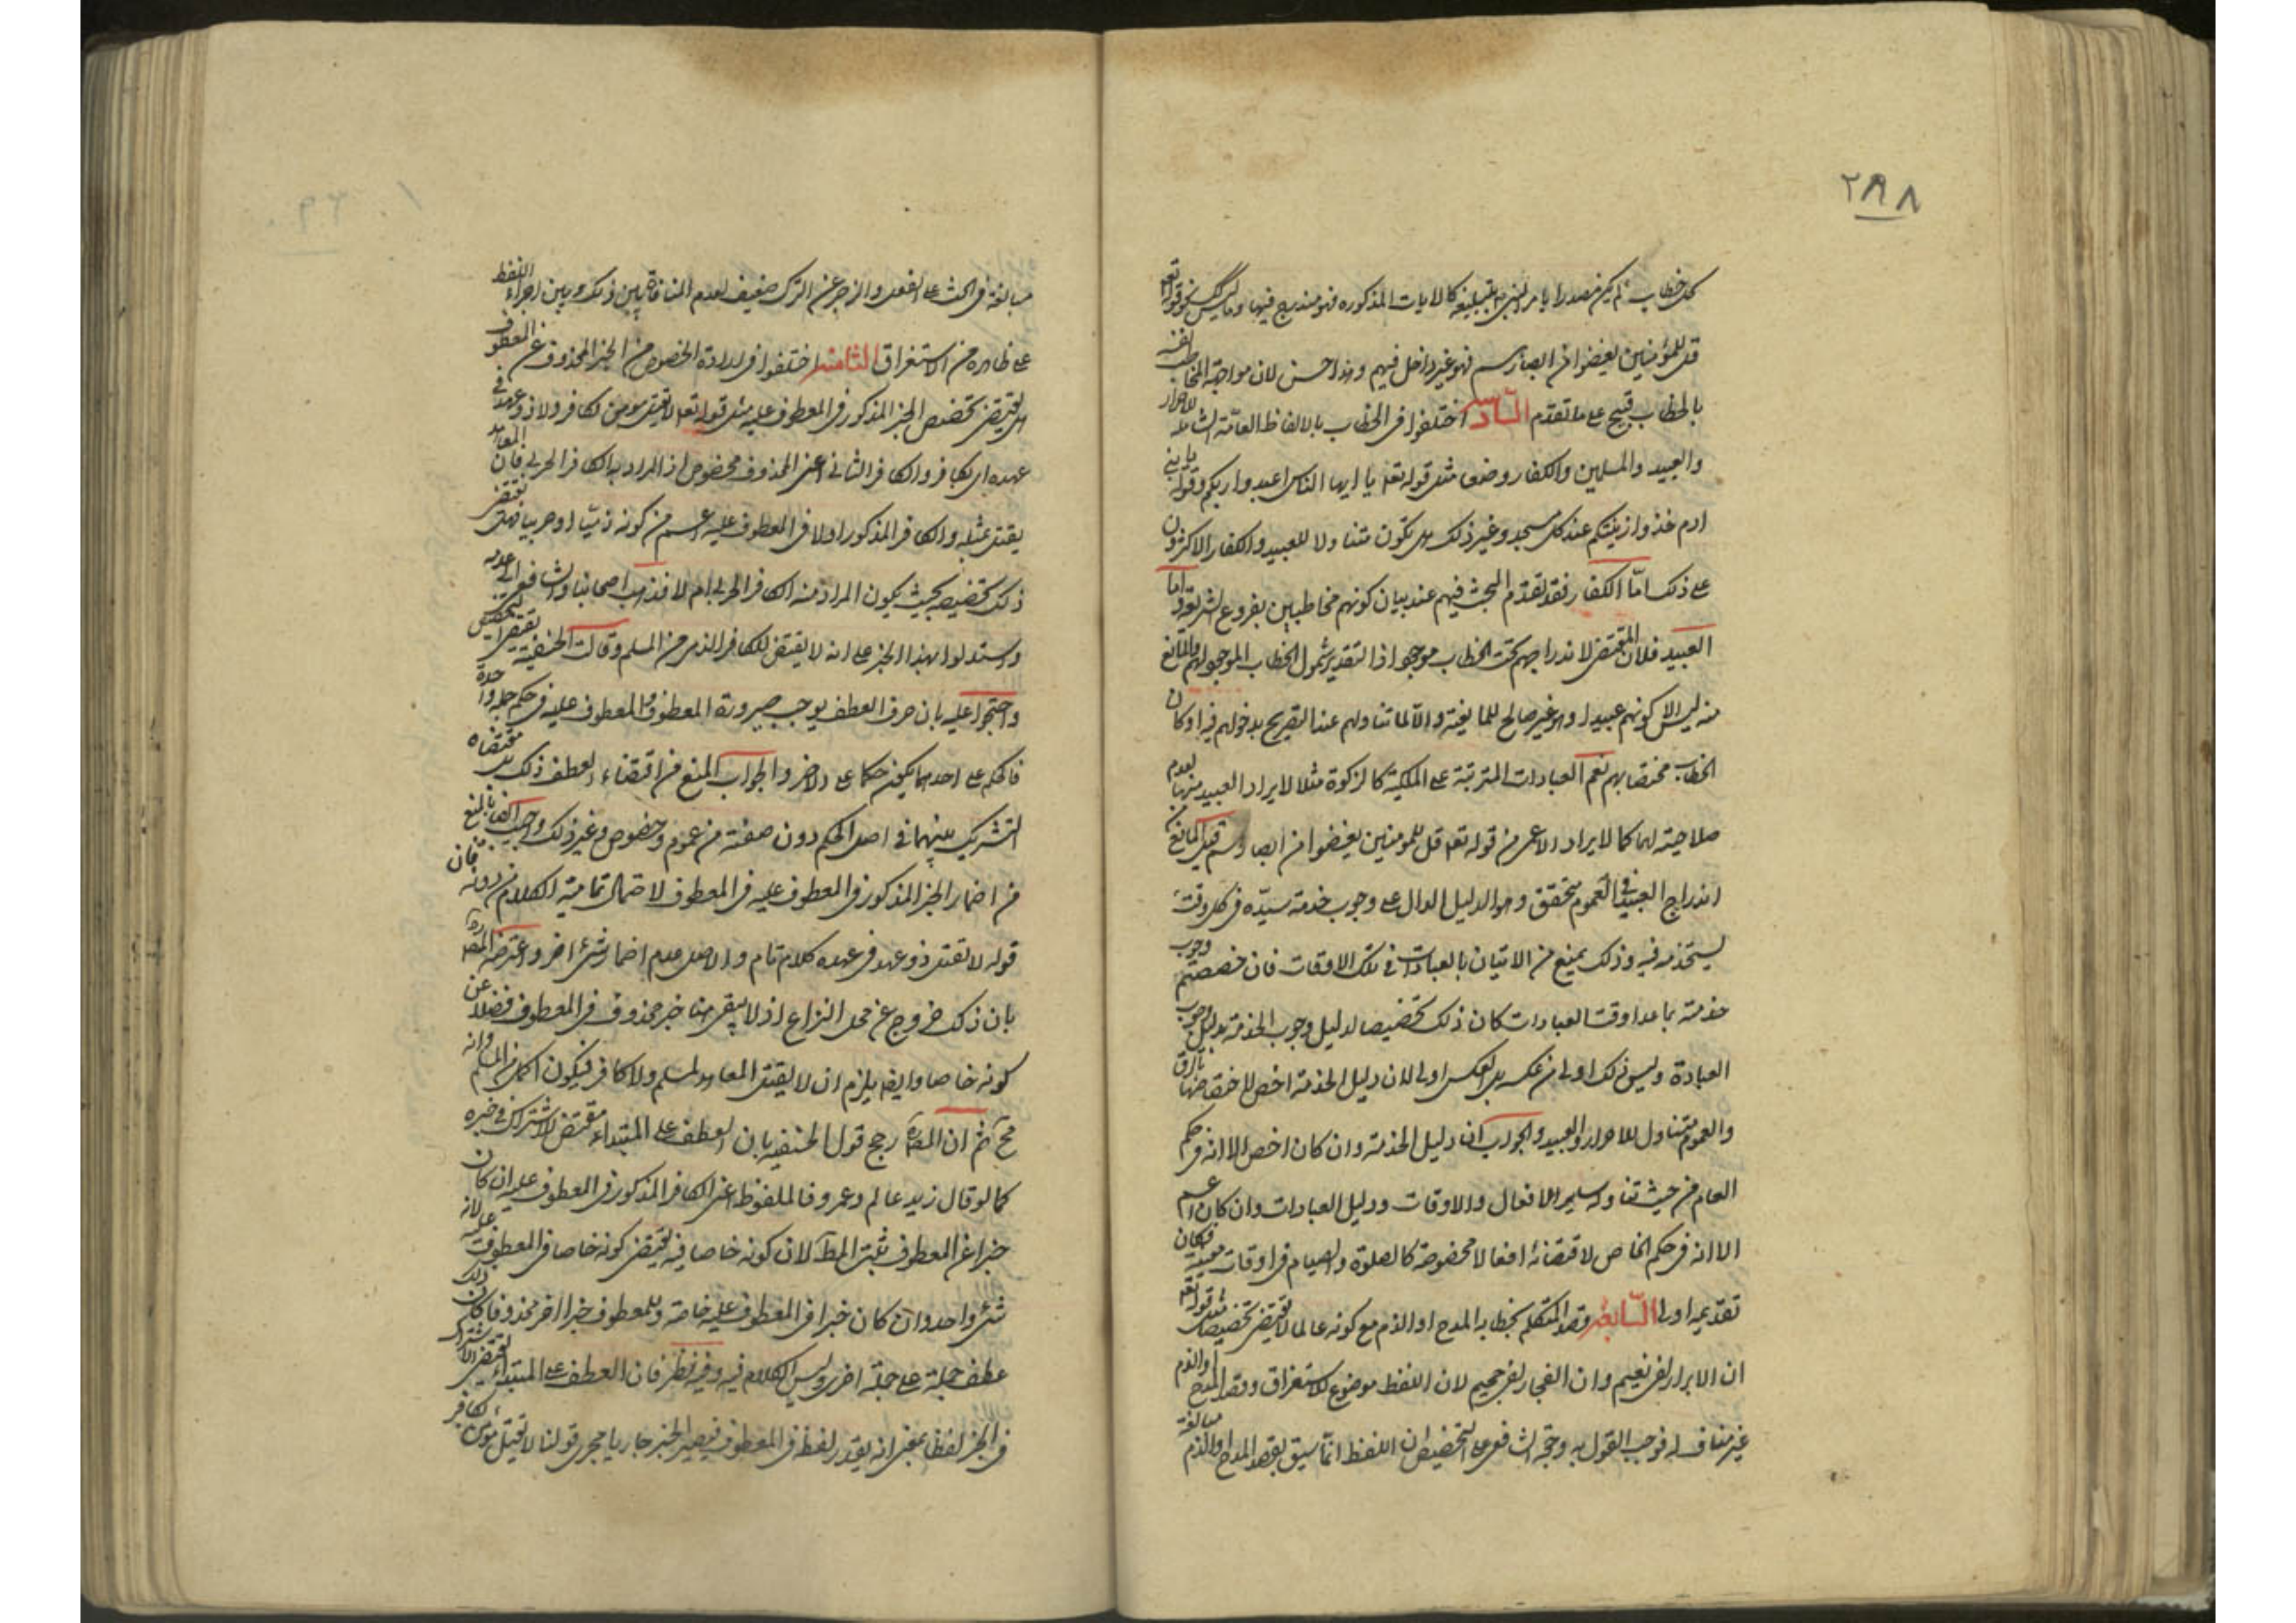 ٢٩٨
كل خطاب لم يكن مصدرا بامر النبي بتبليغه كالايات المذكوره فهو مندرج فيها وما ليس كقوله تعه
قل للمؤمنين يغضوا من ابصارهم فهو غير داخل فيهم وهذا حسن لان مواجهة المخاطب لنفسه
بالخطاب قبيح على ما تقدم السادس اختلفوا في الخطاب بالالفاظ العامّة الشاملة للاحرار
والعبيد والمسلمين والكفار وضعا مثل قوله تعه يا ايها الناس اعبدوا ربكم وقوله يا بني
ادم خذوا زينتكم عند كل مسجد وغير ذلك هل تكون متناولا للعبيد والكفار الاكثرون
على ذلك امّا الكفار فقد تقدم البحث فيهم عند بيان كونهم مخاطبين بفروع الشريعة واما
العبيد فلان المقتضي لاندراجهم تحت الخطاب موجود اذ التقدير شمول الخطاب الموجود لهم والمانع
منه ليس الا كونهم عبيدا وهو غير صالح للمانعية والا لما تناولهم عند التصريح بدخولهم فيه او كان
الخطاب مختصا بهم نعم العبادات المترتبة على الملكية كالزكوة مثلا لا يراد العبيد منها لعدم
صلاحيته لها كما لا يراد الاعمى من قوله تعه قل للمومنين يغضوا من ابصارهم قيل المانع من
اندراج العبيد في العموم متحقق وهو الدليل الدال على وجوب خدمة سيّده في كل وقت
يستخدمه فيه وذلك يمنع من الاتيان بالعبادات في تلك الاوقات فان خصصتم وجوب
خدمته بما عدا وقت العبادات كان ذلك تخصيصا لدليل وجوب الخدمة بدليل وجوب
العبادة وليس ذلك اولى من عكسه بل العكس اولى لان دليل الخدمة اخص لاختصاصها بالرق
والعموم متناول للاحرار والعبيد والجواب ان دليل الخدمة وان كان اخص الا انه في حكم
العام من حيث تناوله لسائر الافعال والاوقات ودليل العبادات وان كان اعم
الا انه في حكم الخاص لاقتضائه افعالا مخصوصة كالصلوة والصيام في اوقات معينة فكان
تقديمه اولى السابع قصد المتكلم بخطابه المدح او الذم مع كونه عاما لا يقتضي تخصيصه مثل قوله تعه
ان الابرار لفي نعيم وان الفجار لفي جحيم لان اللفظ موضوع للاستغراق وقصد المدح او الذم
غير مناف له فوجب القول به وحجة الشافعي على التخصيص ان اللفظ انما سيق لقصد المدح والذم مبالغة
مبالغة في الحث على الفعل والزجر عن الترك ضعيف لعدم المنافاة بين ذلك وبين اجراء اللفظ
على ظاهره من الاستغراق الثامن اختلفوا في ارادة الخصوص من الخبر المحذوف عن المعطوف
هل يقتضي تخصيص الخبر المذكور في المعطوف عليه مثل قوله تعه لا يقتل مومن بكافر ولا ذو عهد في
عهده اي بكافر والكافر الثاني اعني المحذوف مخصوص اذ المراد به الكافر الحربي فان المعاهد
يقتل بمثله والكافر المذكور اولا في المعطوف عليه اعم من كونه ذميّا او حربيا فهل يقتضي
ذلك تخصيصه بحيث يكون المراد منه الكافر الحربي ام لا فذهب اصحابنا والشافعي الى عدمه
واستدلوا بهذا الخبر على انه لا يقتص للكافر الذمي من المسلم وقالت الحنفية يقتضي التخصيص
واحتجوا عليه بان حرف العطف يوجب صيرورة المعطوف والمعطوف عليه في حكم جملة واحدة
فالحكم على احدهما يكون حكما على الاخر والجواب المنع من اقتضاء العطف ذلك بل مقتضاه
التشريك بينهما في اصل الحكم دون صفته من عموم وخصوص وغير ذلك واجيب ايضا بالمنع
من اضمار الخبر المذكور في المعطوف عليه في المعطوف لاحتمال تمامية الكلام من دونه فان
قوله لا يقتل ذو عهد في عهده كلام تام والاصل عدم اضمار شئ اخر واعترضه المصره
بان ذلك خروج عن محل النزاع اذ لا يبقى هنا خبر محذوف في المعطوف فضلا عن
كونه خاصا وايضا يلزم ان لا يقتل المعاهد لمسلم ولا كافر فيكون اكمل من المسلم وانه
مح ثم ان المصره رجح قول الحنفيه بان العطف على المبتداء مقتض للاشتراك في خبره
كما لو قال زيد عالم وعمرو فالملفوظ اعني الكافر المذكور في المعطوف عليه ان كان
خبرا عن المعطوف ثبت المط لان كونه خاصا فيه يقتضي كونه خاصا في المعطوف عليه لانه
شئ واحد وان كان خبرا في المعطوف عليه خاصة وللمعطوف خبرا اخر محذوفا كان ذلك
عطف جملة على جملة اخرى وليس الكلام فيه وفيه نظر فان العطف على المبتداء يقتضي الاشتراك
في الخبر لفظا بمعنى انه يقدر لفظه في المعطوف فيصير الخبر جاريا مجرى قولنا لا يقتل مؤمن بكافر